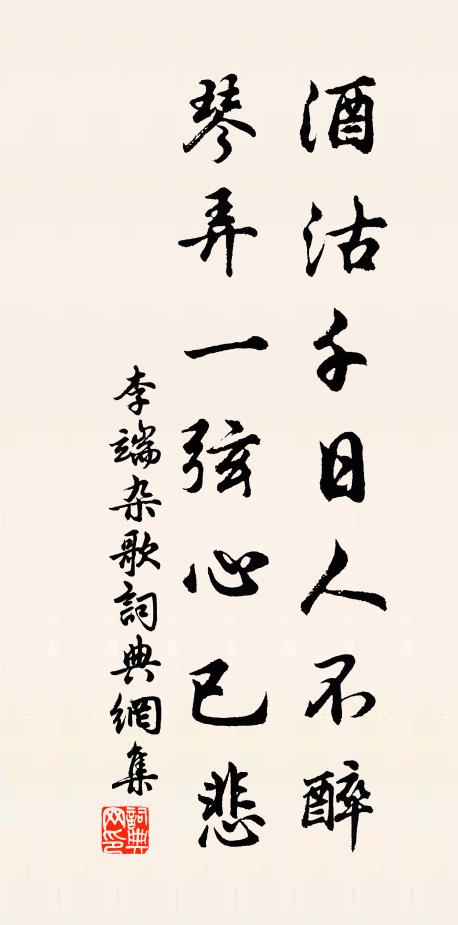 酒沽千日人不醉
琴弄一弦心已悲
李端杂歌詞典網集
詞典網印